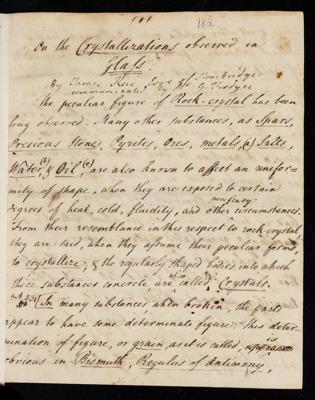 (1) 182
On the Crystallizations observed in
Glass.
By James Keir of Stourbridge
communicated by G. Fordyce
The peculiar figure of Rock-crystal has been
long observed. Many other substances, as Spars,
Precious Stones, Pyrites, Ores, metals, (a) Salts,
Water, (b) & Oil, (c) are also known to affect an unifor=
mity of shape, when they are exposed to certain
degrees of heat, cold, fluidity, and other necessary circumstances.
From their resemblance in this respect to rock crystal,
they are said, when they assume their peculiar forms,
to crystallize; & the regularly shaped bodies into which
these substances concrete, are also called Crystals.
In many substances when broken, the parts
appear to have some determinate figure. This deter=
mination of figure, or grain, as it is called, is
obvious in Bismuth, Regulus of Antimony,